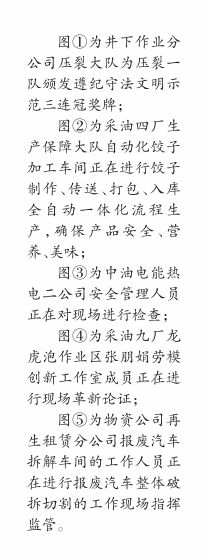 图①为井下作业分
公司压裂大队为压裂一
队颁发遵纪守法文明示
范三连冠奖牌；
图②为采油四厂生
产保障大队自动化饺子
加工车间正在进行饺子
制作、传送、打包、入库
全自动一体化流程生
产，确保产品安全、营
养、美味；
图③为中油电能热
电二公司安全管理人员
正在对现场进行检查；
图④为采油九厂龙
虎泡作业区张朋娟劳模
创新工作室成员正在进
行现场革新论证；
图⑤为物资公司再
生租赁分公司报废汽车
拆解车间的工作人员正
在进行报废汽车整体破
拆切割的工作现场指挥
监管。